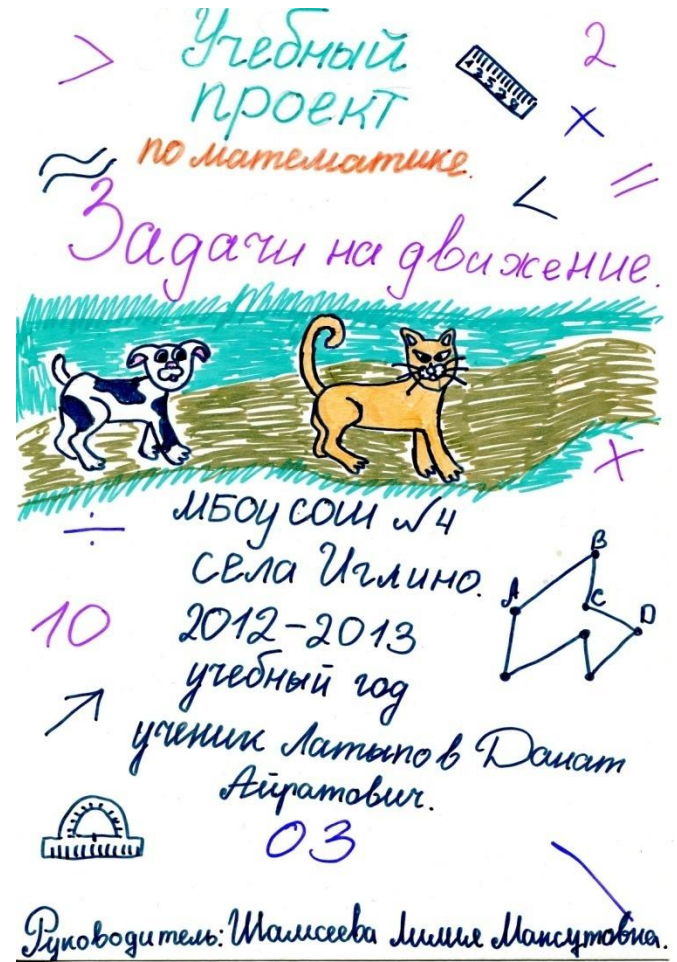 Учебный
проект
по математике.
Задачи на движение.
МБОУ СОШ №4
села Иглино.
2012-2013
учебный год
ученик Латыпов Данат
Айратович.
Руководитель: Шамсеева Лилия Максутовна.
>
2
×
≈
<
=
+
÷
10
A
B
C
D
03